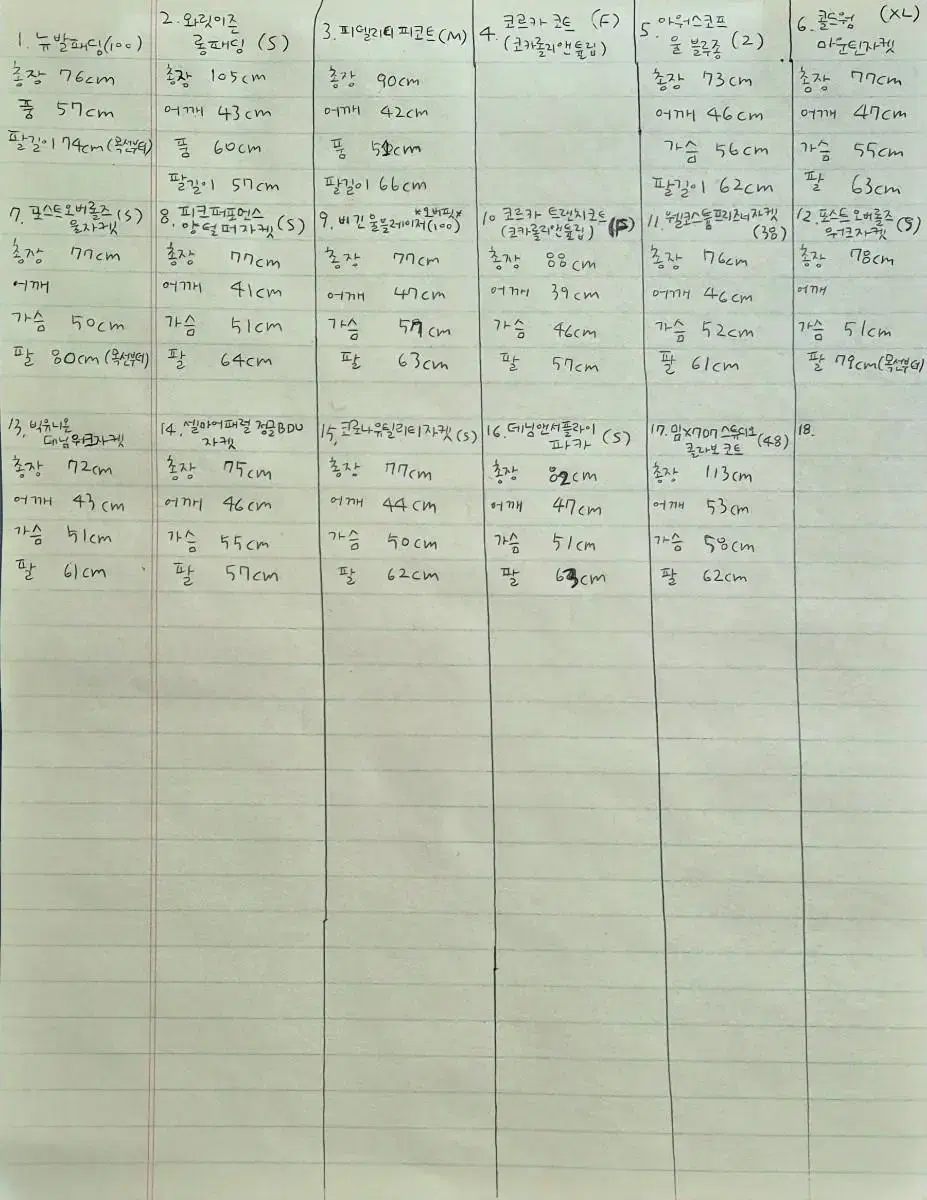 1. 뉴발패딩(100)
총장 76cm
품 57cm
팔길이 74cm(목선부터)
2. 와릿이즌
롱패딩 (S)
총장 105cm
어깨 43cm
품 60cm
팔길이 57cm
3. 피델리티 피코트(M)
총장 90cm
어깨 42cm
품 cm
팔길이 66cm
4. 코르카 코트 (F)
(코카롤리앤튤립)
5. 아워스코프
울 블루종 (2)
총장 73cm
어깨 46cm
가슴 56cm
팔길이 62cm
6. 콜드웜 (XL)
마운틴자켓
총장 77cm
어깨 47cm
가슴 55cm
팔 63cm
7. 포스트오버롤즈 (S)
울자켓
총장 77cm
어깨
가슴 50cm
팔 80cm(목선부터)
8. 피크퍼포먼스
양털퍼자켓 (S)
총장 77cm
어깨 41cm
가슴 51cm
팔 64cm
9. 비긴 울블레이저 *오버핏* (100)
총장 77cm
어깨 47cm
가슴 57cm
팔 63cm
10. 코르카 트랜치코트
(코카롤리앤튤립) (F)
총장 88cm
어깨 39cm
가슴 46cm
팔 57cm
11. 웰코스튬프리즈너자켓
(38)
총장 76cm
어깨 46cm
가슴 52cm
팔 61cm
12. 포스트 오버롤즈
워크자켓 (S)
총장 78cm
어깨
가슴 51cm
팔 79cm(목선부터)
13. 빅유니온
데님워크자켓
총장 72cm
어깨 43cm
가슴 51cm
팔 61cm
14. 셀마어패럴 정글BDU
자켓
총장 75cm
어깨 46cm
가슴 55cm
팔 57cm
15. 코로나유틸리티자켓(S)
총장 77cm
어깨 44cm
가슴 50cm
팔 62cm
16. 데님앤서플라이
파카 (S)
총장 82cm
어깨 47cm
가슴 51cm
팔 63cm
17. 밈X707스튜디오
콜라보 코트 (48)
총장 113cm
어깨 53cm
가슴 58cm
팔 62cm
18.